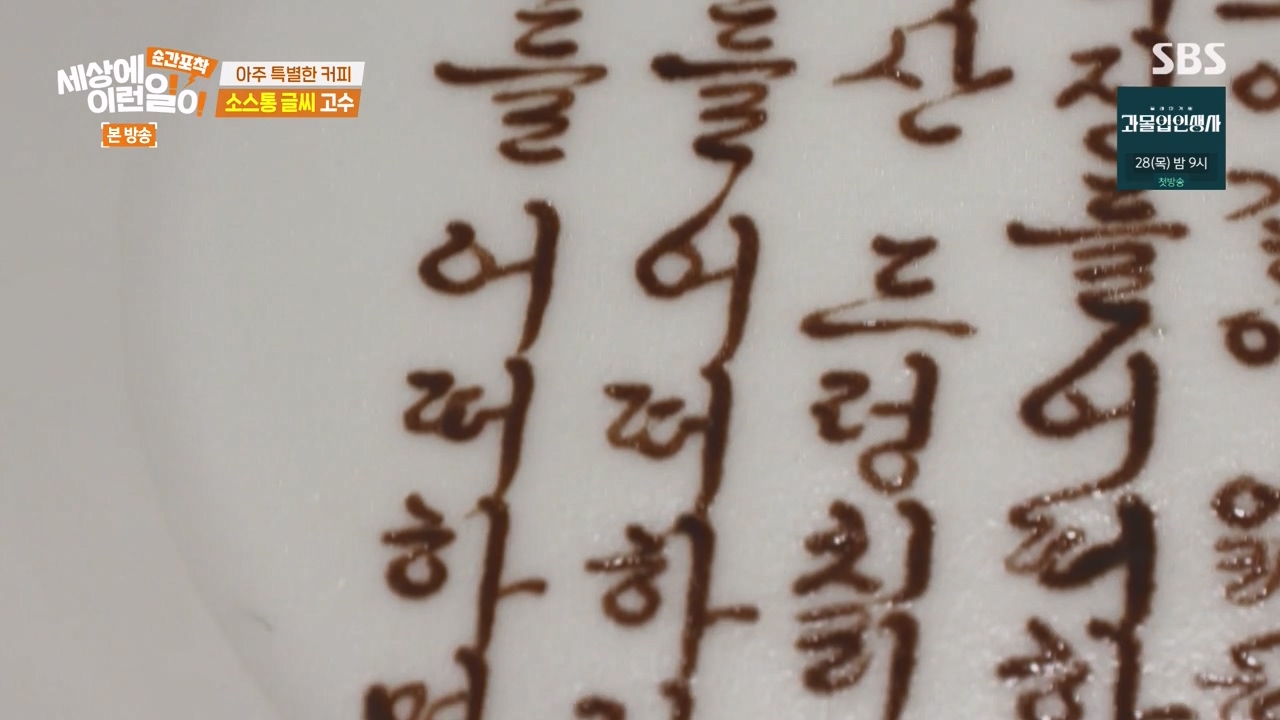 순간포착
세상에
이런 일이!
본 방송
아주 특별한 커피
소스통 글씨 고수
SBS
과몰입인생사
28(목) 밤 9시
첫방송
들어떠하며
들어떠하
산드렁칡
들어떠하